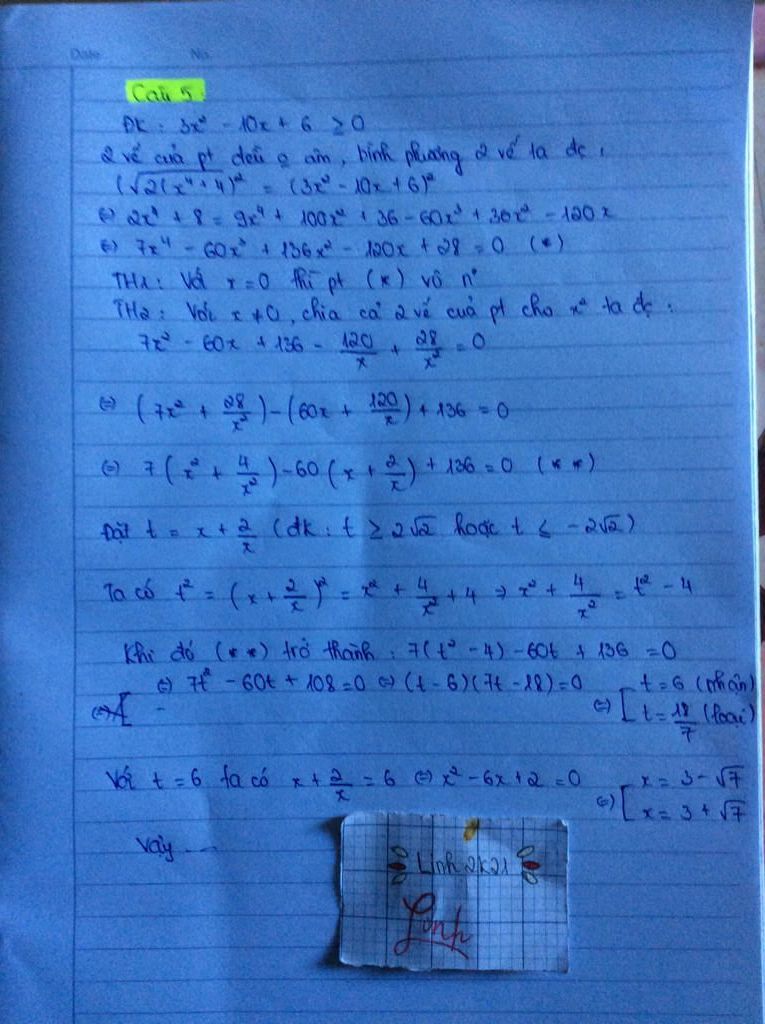 Date No
Câu 5:
ĐK: 3x² - 10x + 6 ≥ 0
2 vế của pt đều ko âm, bình phương 2 vế ta đc:
(√2(x⁴+4)² = (3x² - 10x + 6)²
⇔ 2x⁴ + 8 = 9x⁴ + 100x² + 36 - 60x³ + 36x² - 120x
⇔ 7x⁴ - 60x³ + 136x² - 120x + 28 = 0 (*)
TH1: Với x = 0 thì pt (*) vô n°
TH2: Với x ≠ 0, chia cả 2 vế của pt cho x² ta đc:
7x² - 60x + 136 - 120/x + 28/x² = 0
⇔ (7x² + 28/x²) - (60x + 120/x) + 136 = 0
⇔ 7(x² + 4/x²) - 60(x + 2/x) + 136 = 0 (**)
Đặt t = x + 2/x (đk: t ≥ 2√2 hoặc t ≤ -2√2)
Ta có t² = (x + 2/x)² = x² + 4/x² + 4 ⇒ x² + 4/x² = t² - 4
Khi đó (**) trở thành: 7(t² - 4) - 60t + 136 = 0
⇔ 7t² - 60t + 108 = 0 ⇔ (t - 6)(7t - 18) = 0 ⇔ [ t = 6 (nhận)
t = 18/7 (loại)
Với t = 6 ta có x + 2/x = 6 ⇔ x² - 6x + 2 = 0 ⇔ [ x = 3 - √7
x = 3 + √7
Vậy ---
Linh 2k21
Linh